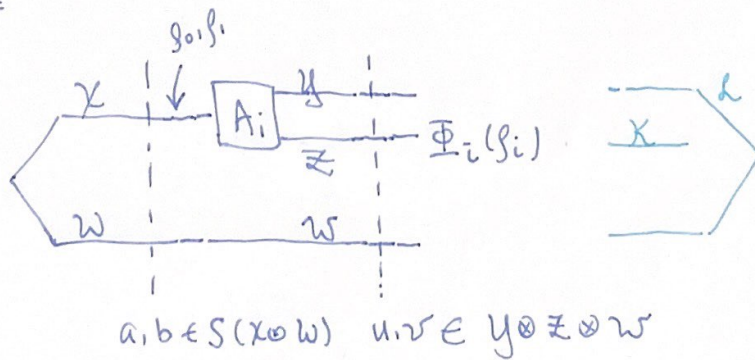 ρ₀,ρ₁
X
A_i
Y
Z
Φ_i(ρ_i)
L
K
W
W
a,b ∈ S(X⊗W) u,v ∈ Y⊗Z⊗W